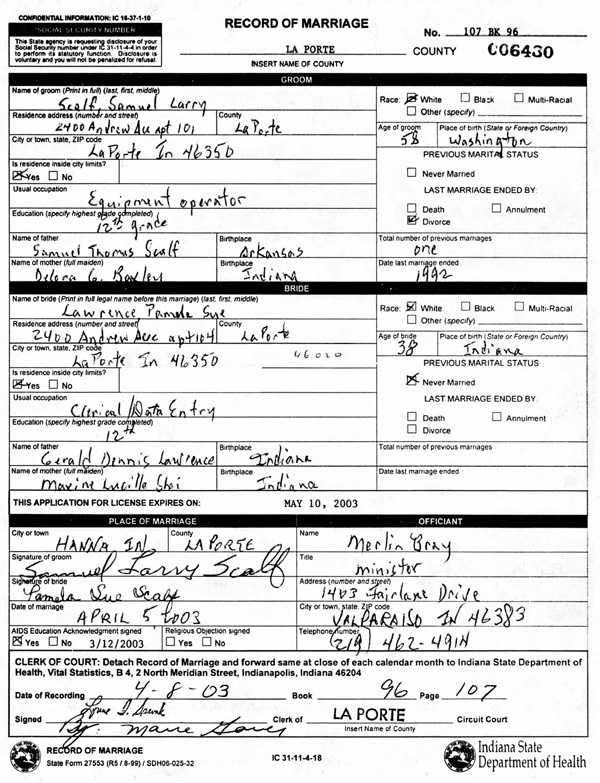 CONFIDENTIAL INFORMATION: IC 16-37-1-10
*SOCIAL SECURITY NUMBER
This State agency is requesting disclosure of your
Social Security number under IC 31-11-4-4 in order
to perform its statutory function. Disclosure is
voluntary and you will not be penalized for refusal.
RECORD OF MARRIAGE
No. 107 BK 96
LA PORTE COUNTY 006430
INSERT NAME OF COUNTY
GROOM
Name of groom (Print in full) (last, first, middle)
Scalf, Samuel Larry
Race: White Black Multi-Racial
Other (specify)
Residence address (number and street) County
2400 Andrew Ave apt 101 LaPorte
Age of groom Place of birth (State or Foreign Country)
58 Washington
City or town, state, ZIP code
LaPorte In 46350
PREVIOUS MARITAL STATUS
Never Married
Is residence inside city limits?
Yes No
LAST MARRIAGE ENDED BY:
Usual occupation
Equipment operator
Death Annulment
Divorce
Education (specify highest grade completed)
12th grade
Name of father Birthplace Total number of previous marriages
Samuel Thomas Scalf Arkansas one
Name of mother (full maiden) Birthplace Date last marriage ended
Delora G. Indiana 1992
BRIDE
Name of bride (Print in full legal name before this marriage) (last, first, middle)
Lawrence Pamela Sue
Race: White Black Multi-Racial
Other (specify)
Residence address (number and street) County
2400 Andrew Ave apt 104 LaPorte
Age of bride Place of birth (State or Foreign Country)
38 Indiana
City or town, state, ZIP code
LaPorte In 46350 46020
PREVIOUS MARITAL STATUS
Never Married
Is residence inside city limits?
Yes No
LAST MARRIAGE ENDED BY:
Usual occupation
Clerical/Data Entry
Death Annulment
Divorce
Education (specify highest grade completed)
12th
Name of father Birthplace Total number of previous marriages
Gerald Dennis Lawrence Indiana
Name of mother (full maiden) Birthplace Date last marriage ended
Maxine Lucille Indiana
THIS APPLICATION FOR LICENSE EXPIRES ON: MAY 10, 2003
PLACE OF MARRIAGE OFFICIANT
City or town County Name
HANNA IN LAPORTE Merlin Bray
Signature of groom Title
Samuel Larry Scalf minister
Signature of bride Address (number and street)
Pamela Sue Scalf 1403 Fairlane Drive
Date of marriage City or town, state, ZIP code
APRIL 5 2003 VALPARAISO IN 46383
AIDS Education Acknowledgment signed Religious Objection signed Telephone number
Yes No 3/12/2003 Yes No (219) 462-4914
CLERK OF COURT: Detach Record of Marriage and forward same at close of each calendar month to Indiana State Department of
Health, Vital Statistics, B 4, 2 North Meridian Street, Indianapolis, Indiana 46204
Date of Recording 4-8-03 Book 96 Page 107
Signed Clerk of LA PORTE Circuit Court
By: Insert Name of County
RECORD OF MARRIAGE
State Form 27553 (R5 / 8-99) / SDH06-025-32
IC 31-11-4-18
Indiana State
Department of Health